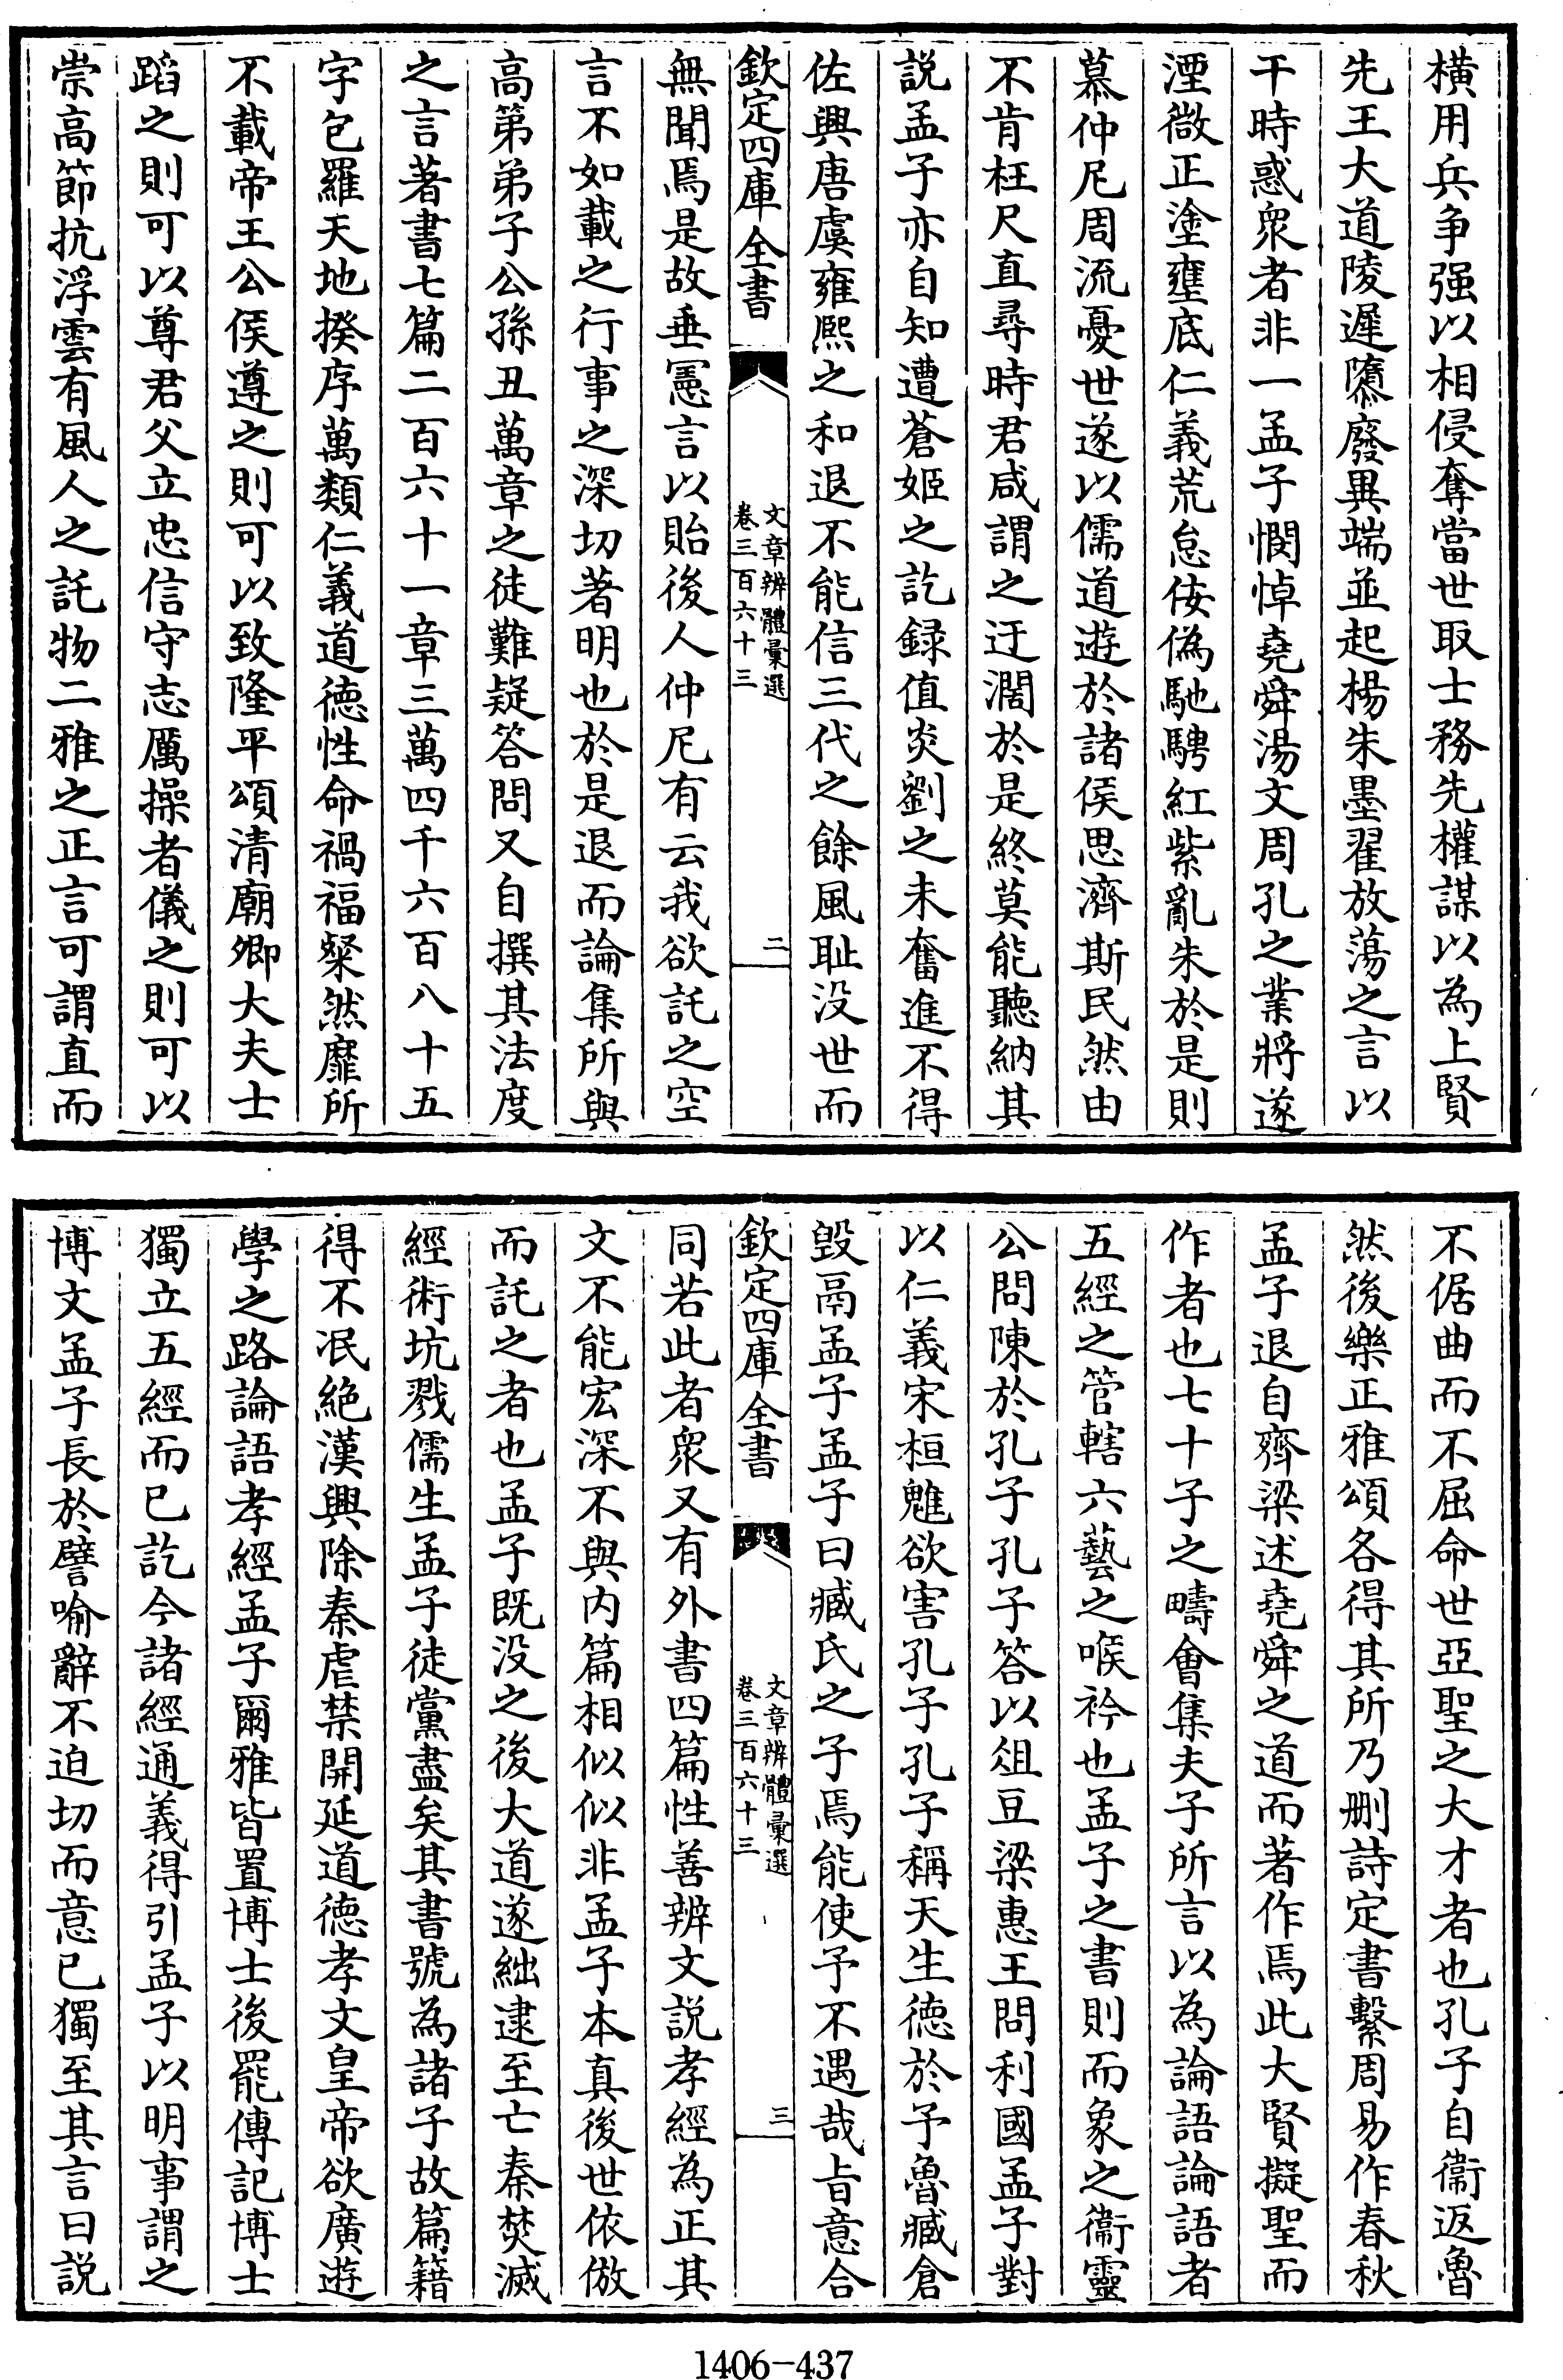 橫用兵争强以相侵奪當世取士務先權謀以為上賢
先王大道陵遲隳廢異端並起楊朱墨翟放蕩之言以
干時惑衆者非一孟子憫悼堯舜湯文周孔之業將遂
湮微正塗壅底仁義荒怠佞偽馳騁紅紫亂朱於是則
慕仲尼周流憂世遂以儒道遊於諸侯思濟斯民然由
不肯枉尺直尋時君咸謂之迂濶於是終莫能聽納其
説孟子亦自知遭蒼姬之訖録值炎劉之未奮進不得
佐興唐虞雍熙之和退不能信三代之餘風耻没世而
欽定四庫全書
文章辨體彙選
卷三百六十三
二
無聞焉是故垂憲言以貽後人仲尼有云我欲託之空
言不如載之行事之深切著明也於是退而論集所與
高第弟子公孫丑萬章之徒難疑答問又自撰其法度
之言著書七篇二百六十一章三萬四千六百八十五
字包羅天地揆序萬類仁義道德性命禍福粲然靡所
不載帝王公侯遵之則可以致隆平頌清廟卿大夫士
蹈之則可以尊君父立忠信守志厲操者儀之則可以
崇高節抗浮雲有風人之託物二雅之正言可謂直而
不倨曲而不屈命世亞聖之大才者也孔子自衞返魯
然後樂正雅頌各得其所乃刪詩定書繫周易作春秋
孟子退自齊梁述堯舜之道而著作焉此大賢擬聖而
作者也七十子之疇會集夫子所言以為論語論語者
五經之管轄六藝之喉衿也孟子之書則而象之衞靈
公問陳於孔子孔子答以俎豆梁惠王問利國孟子對
以仁義宋桓魋欲害孔子孔子稱天生德於予魯臧倉
毀鬲孟子孟子曰臧氏之子焉能使予不遇哉旨意合
欽定四庫全書
文章辨體彙選
卷三百六十三
三
同若此者衆又有外書四篇性善辨文説孝經為正其
文不能宏深不與内篇相似似非孟子本真後世依倣
而託之者也孟子既没之後大道遂絀逮至亡秦焚滅
經術坑戮儒生孟子徒黨盡矣其書號為諸子故篇籍
得不泯絶漢興除秦虐禁開延道德孝文皇帝欲廣遊
學之路論語孝經孟子爾雅皆置博士後罷傳記博士
獨立五經而已訖今諸經通義得引孟子以明事謂之
博文孟子長於譬喻辭不迫切而意已獨至其言曰説
1406-437